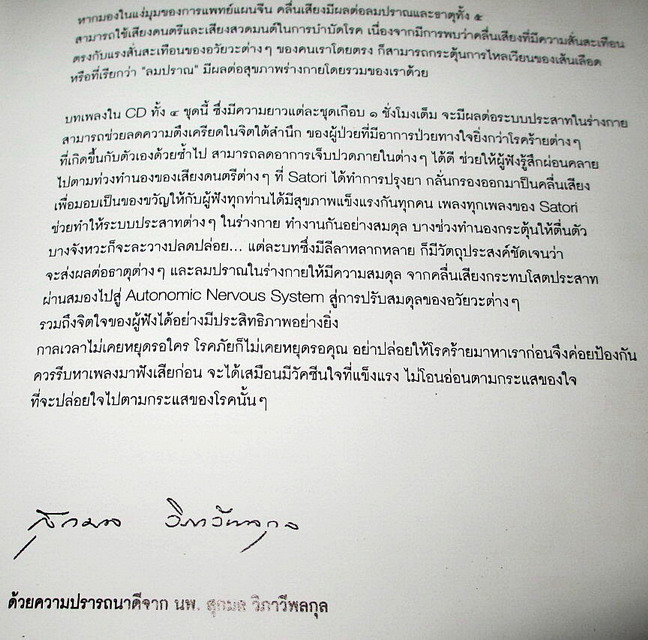 หากมองในแง่มุมของการแพทย์แผนจีน คลื่นเสียงมีผลต่อลมปราณและธาตุทั้ง ๕
สามารถใช้เสียงดนตรีและเสียงสวดมนต์ในการบำบัดโรค เนื่องจากมีการพบว่าคลื่นเสียงที่มีความสั่นสะเทือน
ตรงกับแรงสั่นสะเทือนของอวัยวะต่างๆ ของคนเราโดยตรง ก็สามารถกระตุ้นการไหลเวียนของเส้นเลือด
หรือที่เรียกว่า "ลมปราณ" มีผลต่อสุขภาพร่างกายโดยรวมของเราด้วย
บทเพลงใน CD ทั้ง ๔ ชุดนี้ ซึ่งมีความยาวแต่ละชุดเกือบ ๑ ชั่วโมงเต็ม จะมีผลต่อระบบประสาทในร่างกาย
สามารถช่วยลดความตึงเครียดในจิตใต้สำนึก ของผู้ป่วยที่มีอาการป่วยทางใจยิ่งกว่าโรคร้ายต่างๆ
ที่เกิดขึ้นกับตัวเองด้วยซ้ำไป สามารถลดอาการเจ็บปวดภายในต่างๆ ได้ดี ช่วยให้ผู้ฟังรู้สึกผ่อนคลาย
ไปตามท่วงทำนองของเสียงดนตรีต่างๆ ที่ Satori ได้ทำการปรุงยา กลั่นกรองออกมาเป็นคลื่นเสียง
เพื่อมอบเป็นของขวัญให้กับผู้ฟังทุกท่านได้มีสุขภาพแข็งแรงกันทุกคน เพลงทุกเพลงของ Satori
ช่วยทำให้ระบบประสาทต่างๆ ในร่างกาย ทำงานกันอย่างสมดุล บางช่วงทำนองกระตุ้นให้ตื่นตัว
บางจังหวะก็จะละวางปลดปล่อย... แต่ละบทซึ่งมีลีลาหลากหลาย ก็มีวัตถุประสงค์ชัดเจนว่า
จะส่งผลต่อธาตุต่างๆ และลมปราณในร่างกายให้มีความสมดุล จากคลื่นเสียงกระทบโสตประสาท
ผ่านสมองไปสู่ Autonomic Nervous System สู่การปรับสมดุลของอวัยวะต่างๆ
รวมถึงจิตใจของผู้ฟังได้อย่างมีประสิทธิภาพอย่างยิ่ง
กาลเวลาไม่เคยหยุดรอใคร โรคภัยก็ไม่เคยหยุดรอคุณ อย่าปล่อยให้โรคร้ายมาหาเราก่อนจึงค่อยป้องกัน
ควรรีบหาเพลงมาฟังเสียก่อน จะได้เสมือนมีวัคซีนใจที่แข็งแรง ไม่โอนอ่อนตามกระแสของใจ
ที่จะปล่อยใจไปตามกระแสของโรคนั้นๆ
สุกมล วิภาวีพลกุล
ด้วยความปรารถนาดีจาก นพ. สุกมล วิภาวีพลกุล